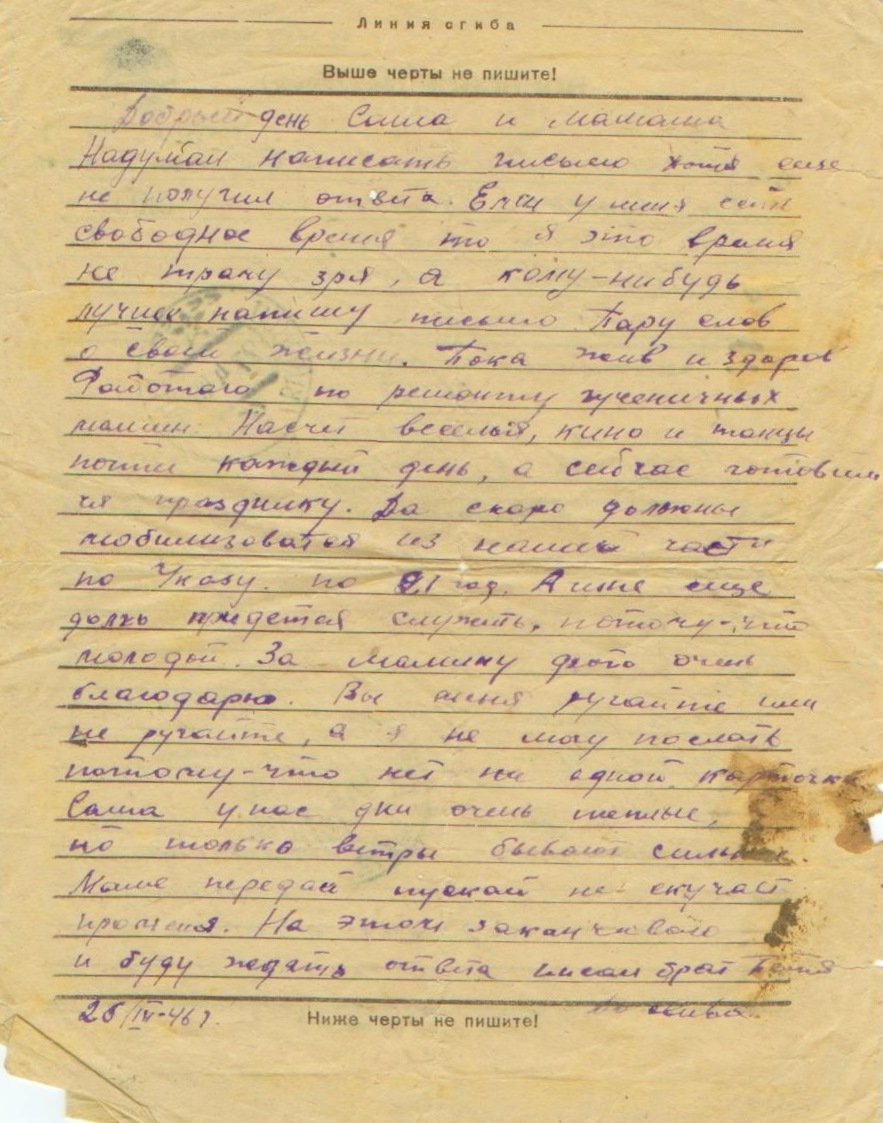 Линия сгиба
Выше черты не пишите!
Добрый день Саша и мамаша
Надумал написать письмо хотя еще
не получил ответа. Если у меня есть
свободное время то я это время
не трачу зря, а кому-нибудь
лучше напишу письмо Пару слов
о своей жизни. Пока жив и здоров
Работаю по ремонту гусеничных
машин. Насчет веселья, кино и танцы
почти каждый день, а сейчас готовим
ся празднику. Да скоро должны
мобилизоватся из нашей части
по Указу. по 21 год. А мне еще
долго придется служить, потому-что
молодой. За мамину фото очень
благодарю. Вы меня ругайте или
не ругайте, а я не могу послать
потому-что нет ни одной карточки
Саша у нас дни очень теплые,
но только ветры бывают сильные.
Маме передай пускай не скучает
про меня. На этом заканчиваю
и буду ждать ответа писал брат Петя
25/IV-46 г.
Ниже черты не пишите!